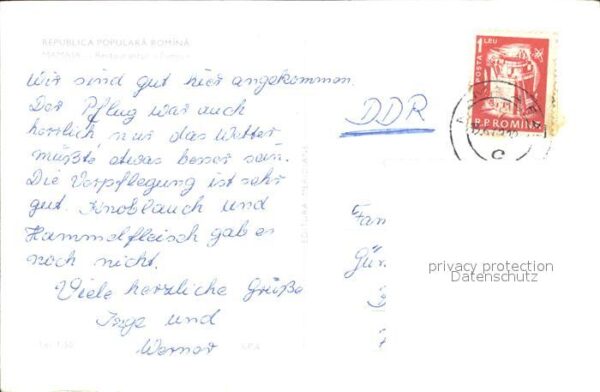 REPUBLICA POPULARĂ ROMÎNĂ
MAMAIA - Restaurantul
Wir sind gut hier angekommen.
Der Pflug war auch
herrlich, nur das Wetter
müßte etwas besser sein.
Die Verpflegung ist sehr
gut. Knoblauch und
Hammelfleisch gab es
noch nicht.
Viele herzliche Grüße
Inge und
Werner
Lei 1,50
EDITURA MERIDIANE
DDR
POSTA 1 LEU
R.P.ROMINA
C
Fam
Gür
privacy protection
Datenschutz